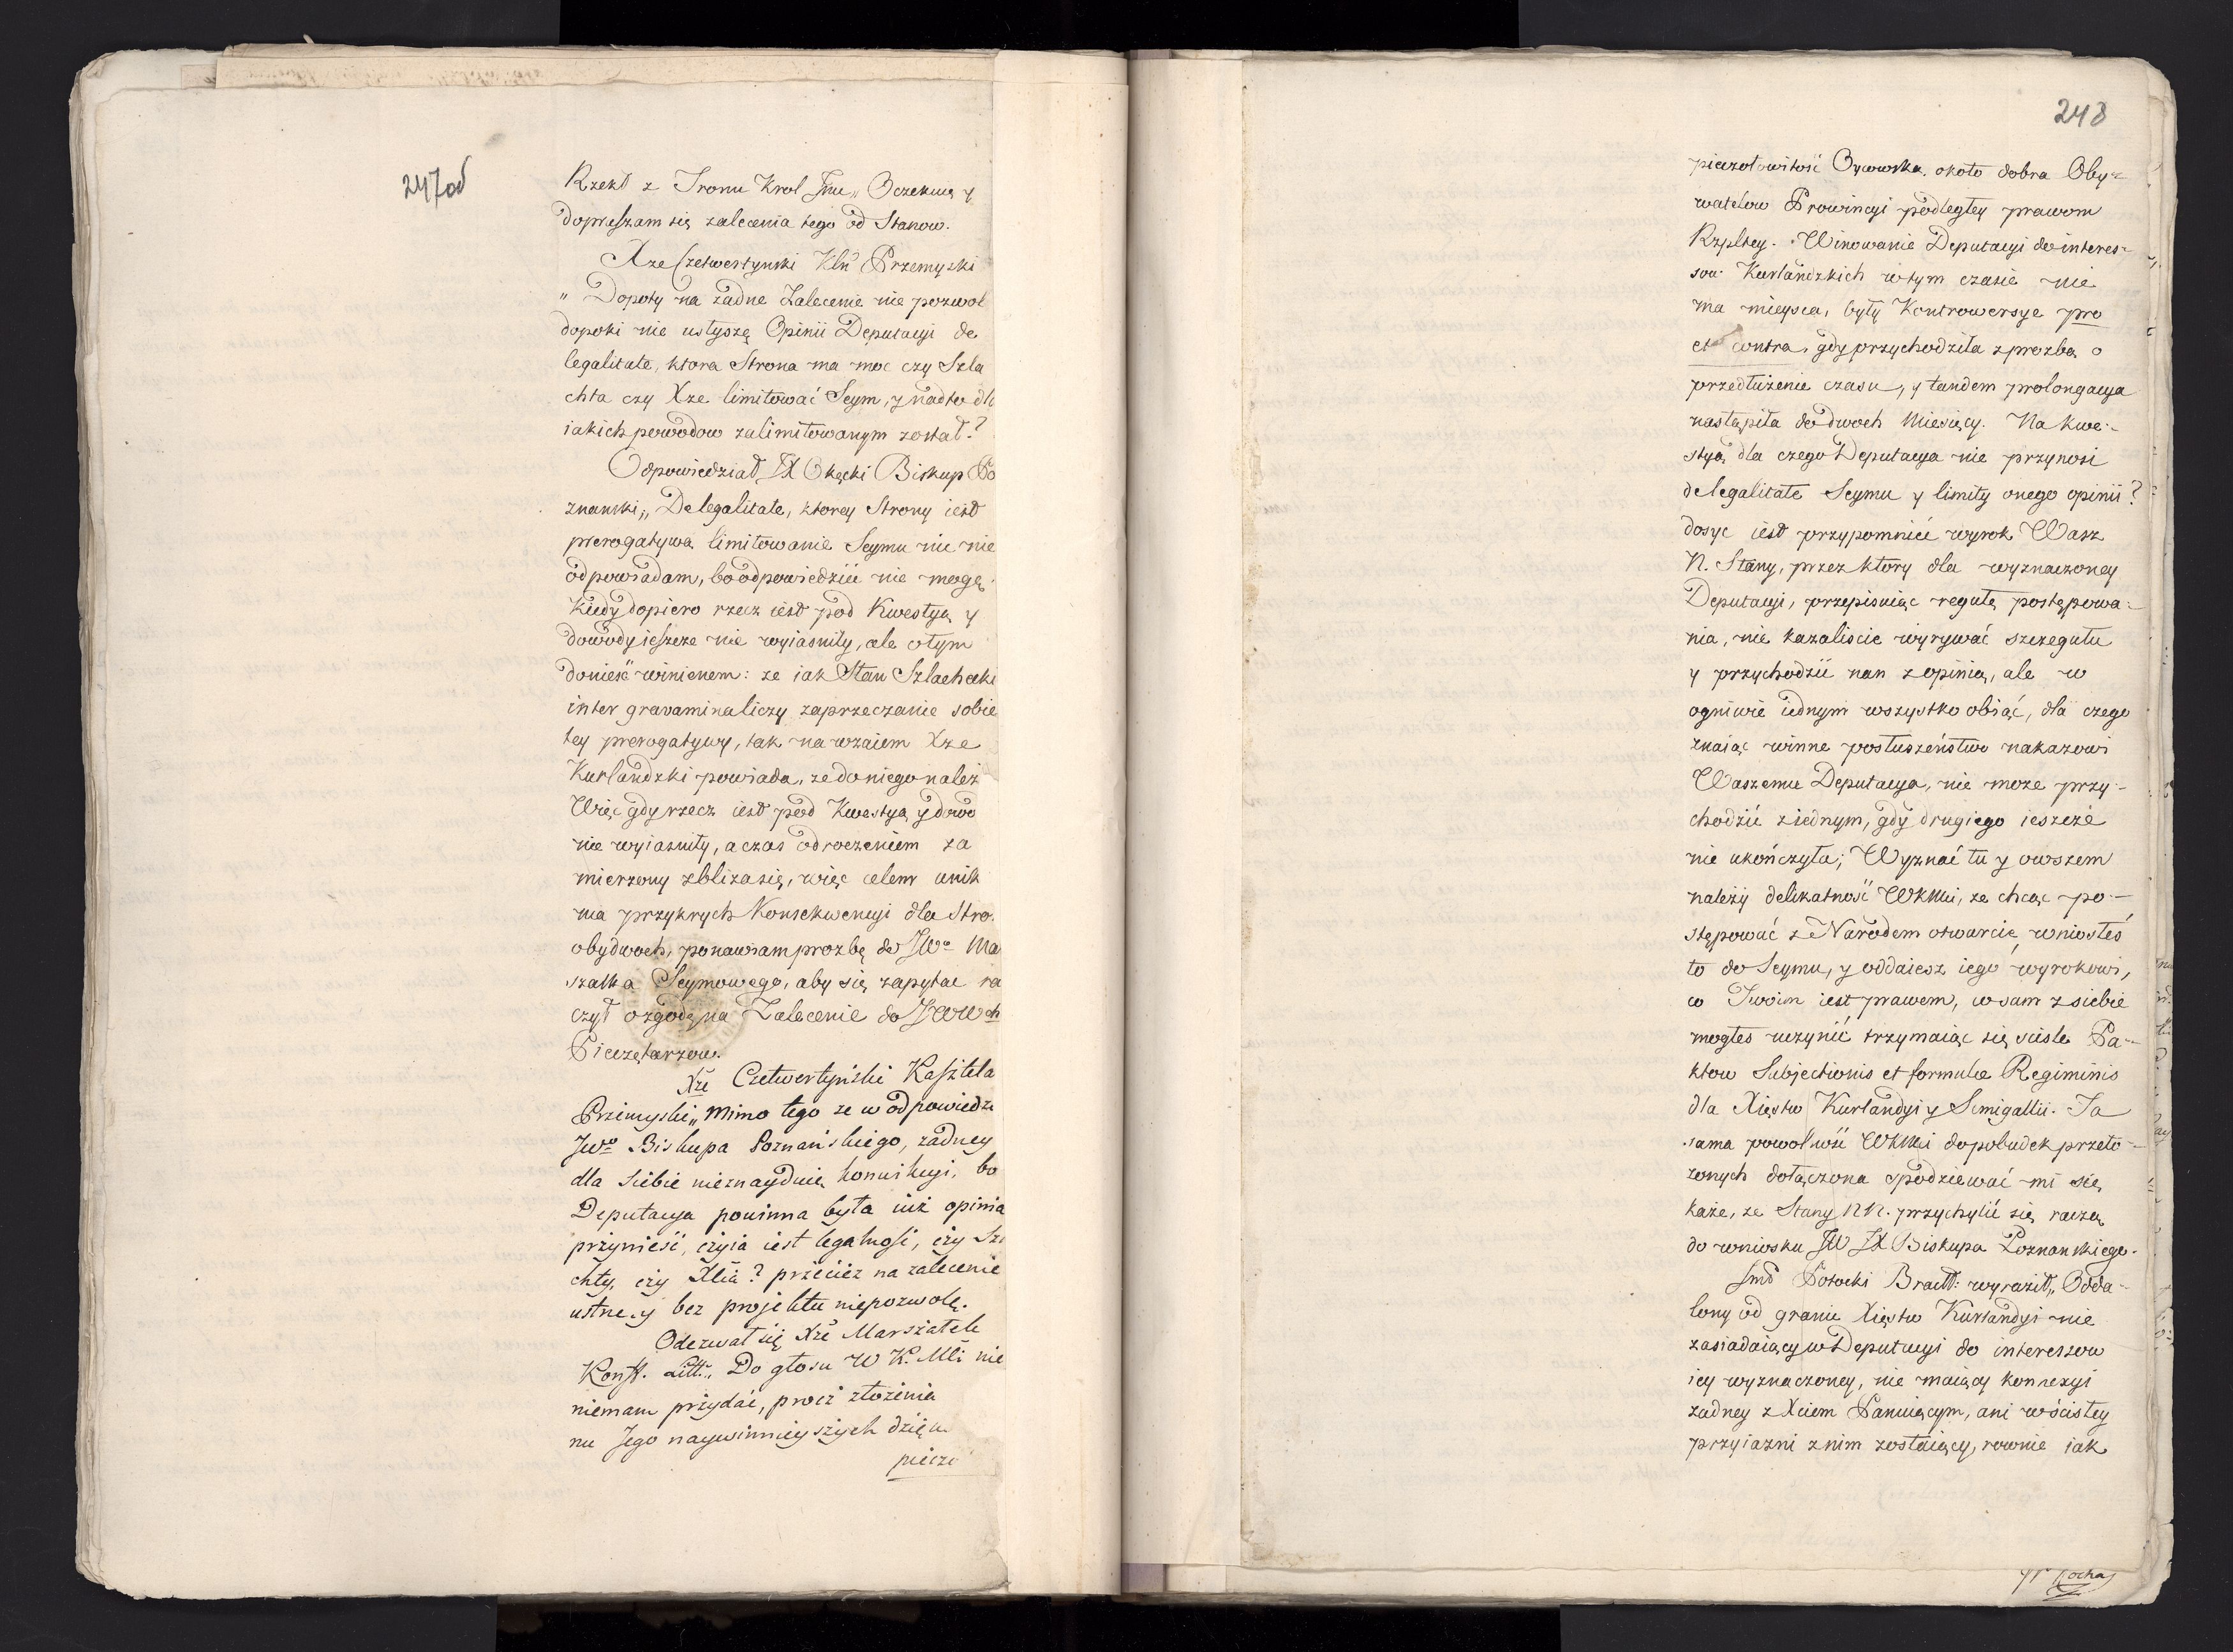 247od
Rzekł z Tronu Krol Jmć „ Oczekuię y
dopraszam się zalecenia tego od Stanow.
Xze Czetwertynski Kłń Przemyski
„ Dopoty na żadne Zalecenie nie pozwol
dopoki nie usłyszę Opinii Deputacyi de
legalitate, ktora Strona ma moc czy Szla
chta czy Xze limitować Seym, y nadto dla
iakich powodow zalimitowanym został?
Odpowiedział JX Okęcki Biskup Po
znanski „ De legalitate, ktorey Strony iest
prerogatywą limitowanie Seymu nic nie
odpowiadam, bo odpowiedzieć nie mogę
kiedy dopiero rzecz iest pod Kwestyą y
dowody ieszcze nie wyiasniły, ale o tym
donieść winienem: ze iak Stan Szlachecki
inter gravamina liczy zaprzeczanie sobie
tey prerogatywy, tak na wzaiem Xze
Kurlandzki powiada, ze do niego należ
Więc gdy rzecz iest pod Kwestyą y dowo
nie wyiasniły, a czas odroczeniem za
mierzony zbliza się, więc celem unik
nia przykrych Konsekwencyi dla Stro.
obydwoch, ponawiam prozbę do JWo Ma
szałka Seymowego, aby się zapytac ra
czył o zgodę na Zalecenie do JWWch
Pieczętarzow.
Xże Czetwertyński Kasztela
Przemyski „ Mimo tego ze w odpowiedzi
JWo Biskupa Poznańskiego, zadney
dla siebie nieznayduię konwikcyi, bo
Deputacya powinna była iuż opinią
przynieść, czyia iest legalność, czy Szl
chty, czy Xcia? przecież na zalecenie
ustne, y bez projektu niepozwolę.
Odezwał się Xże Marszałek
Konf. Litt. „ Do głosu W K. Mći nic
niemam przydać, procz złożenia
nu Jego naywinnieyszych dzięk
piecz
243
pieczołowitość Oycowską około dobra Oby-
watelow Prowincyi podległey prawom
Rzpltey. Winowanie Deputacyi do interes-
sow Kurlandzkich w tym czasie nie
ma mieysca, były Kontrowersye pro
et contra, gdy przychodziła z prozbą o
przedłużenie czasu, y tandem prolongacya
nastąpiła do dwoch Miesięcy. Na kwe-
styą dla czego Deputacya nie przynosi
de legalitate Seymu y limity onego opinii?
dosyc iest przypomnieć wyrok Wasz
N. Stany, przez ktory dla wyznaczoney
Deputacyi, przepisuiąc regułę postępowa-
nia, nie kazaliscie wyrywać szczegułu
y przychodzić nań z opinią, ale w
ogniwie iednym wszystko obiąć, dla czego
znaiąc winne posłuszeństwo nakazowi
Waszemu Deputacya, nie moze przy-
chodzić z iednym, gdy drugiego ieszcże
nie ukończyła; Wyznać tu y owszem
należy delikatność WKMci, ze chcąc po-
stępować z Narodem otwarcie, wniosłeś
to do Seymu, y oddaiesz iego wyrokowi,
co Twoim iest prawem, co sam z siebie
mogłes uczynić trzymaiąc się ściśle Pa-
ktow Subjectionis et formulæ Regiminis
dla Xięstw Kurlandyi y Semigallii. Ta
sama powolność WKMci do pobudek przeło-
zonych dołączona spodziewać mi się
każe, ze Stany NN. przychylić się raczą
do wniosku JW JX Biskupa Poznanskiego.
Jmć Potocki Bracł: wyraził „ Odda-
lony od granic Xięstw Kurlandyi nie
zasiadaiący w Deputacyi do interessow
icy wyznaczoney, nie maiący konnexyi
żadney z Xciem Panuiącym, ani w ścisłey
przyiazni z nim zostaiący, rownie iak